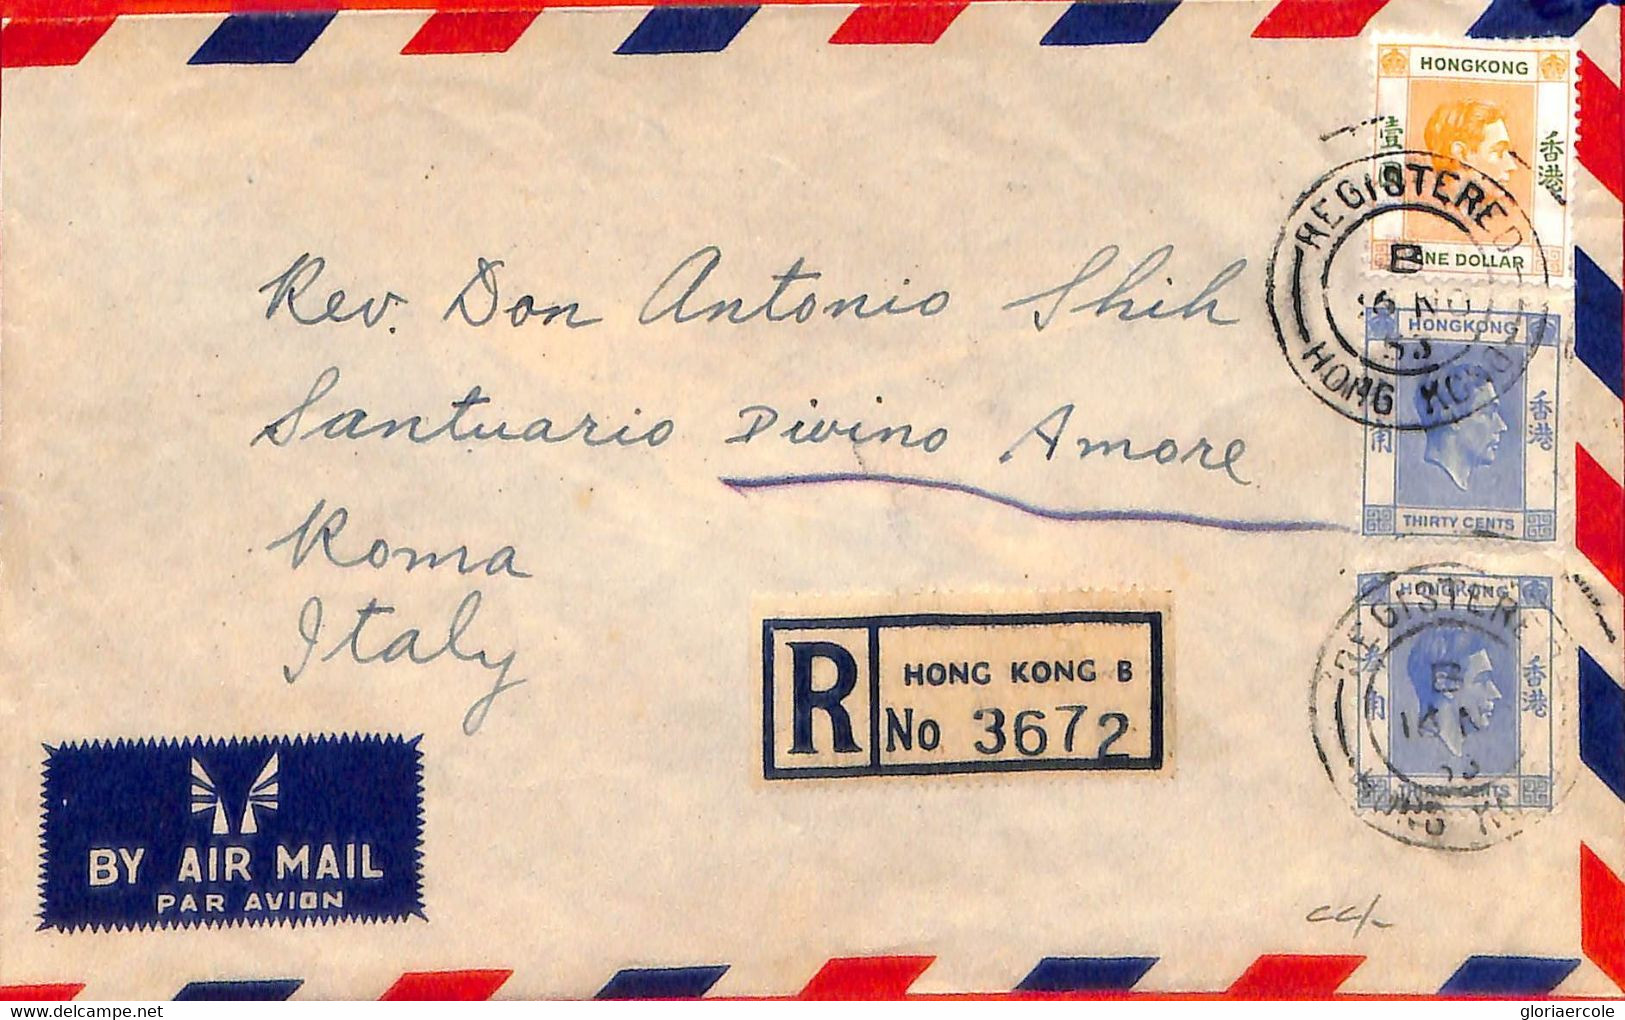 Rev. Don Antonio Shih
Santuario Divino Amore
Roma
Italy
HONGKONG
壹
香港
ONE DOLLAR
REGISTERED
B
HONG KONG
HONGKONG
角
香港
THIRTY CENTS
HONGKONG
角
香港
THIRTY CENTS
REGISTERED
B
HONG KO
R
HONG KONG B
No 3672
BY AIR MAIL
PAR AVION
gloriaercole